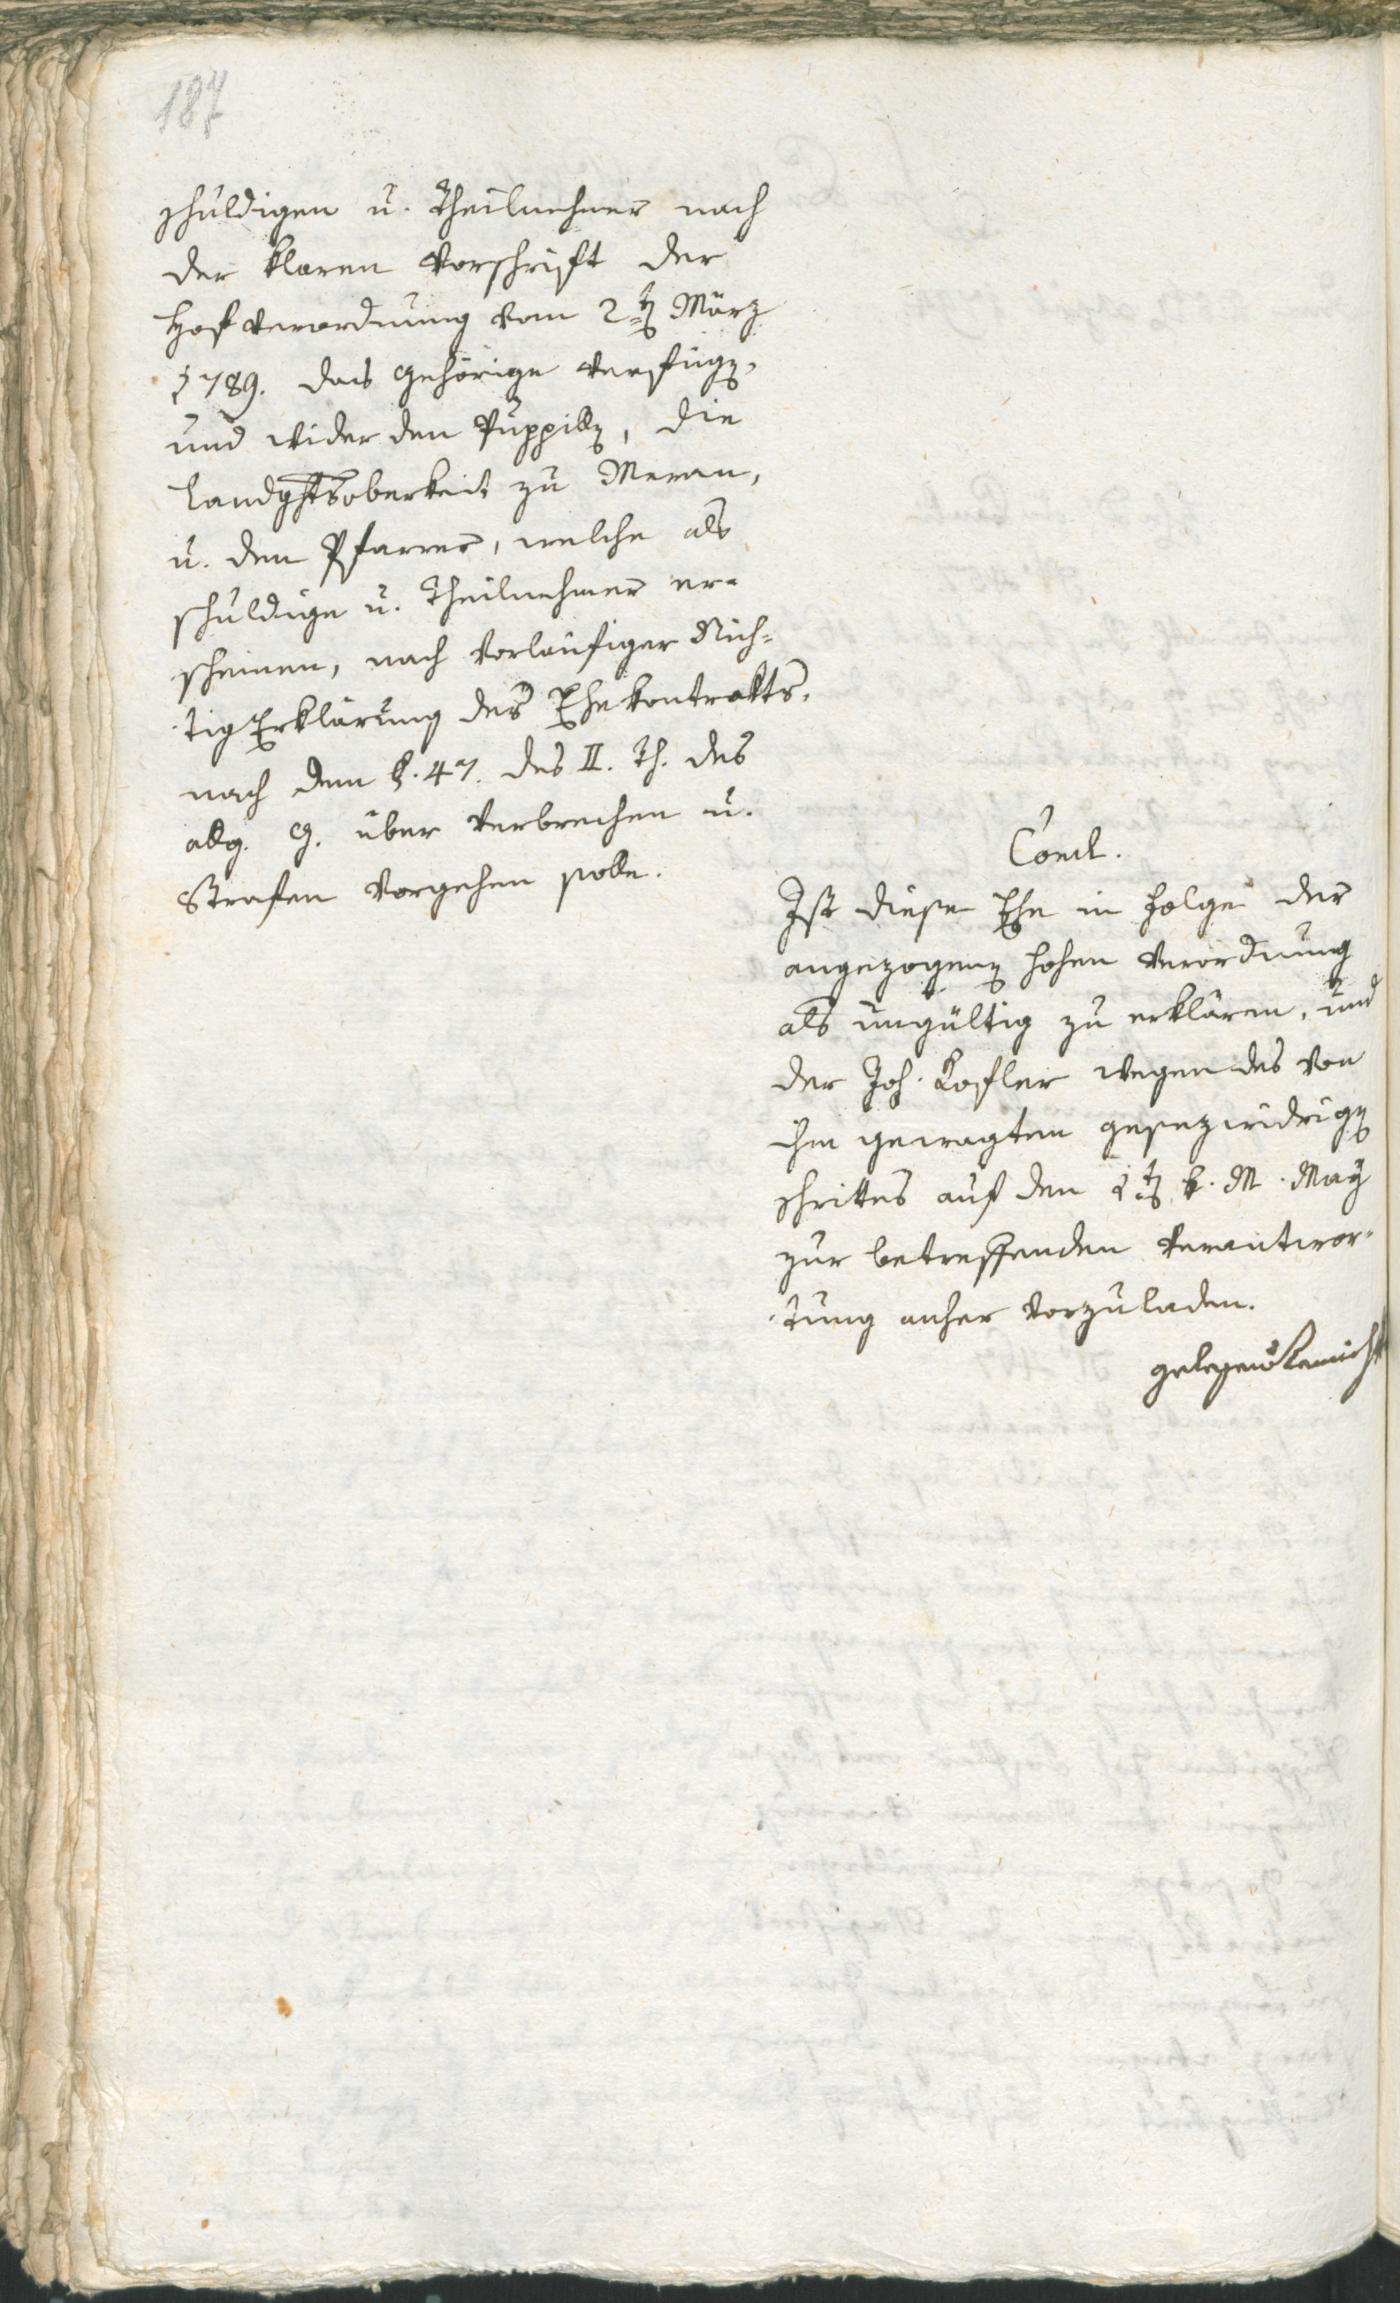 187
schuldigen u. Theilnehmer nach
der klaren Vorschrift der
Hofverordnung vom 2ten März
1789. das gehörige verfügen,
und wider den Puppillen, die
Landghtsoberkeit zu Meran,
u. den Pfarrer, welche als
schuldige u. Theilnehmer er-
scheinen, nach vorläufiger Nich-
tig Erklärung des Ehekontrakts,
nach dem §. 47. des II. Th. des
allg. G. über Verbrechen u.
Strafen vorgehen solle.
Concl.
Ist diese Ehe in Folge der
angezogenen hohen Verordnung
als ungültig zu erklären, und
der Joh. Kofler wegen des von
ihm gewagten gesezwidrigen
Schrittes auf den 1ten k. M. May
zur betreffenden Verantwor-
tung anher vorzuladen.
gelesen